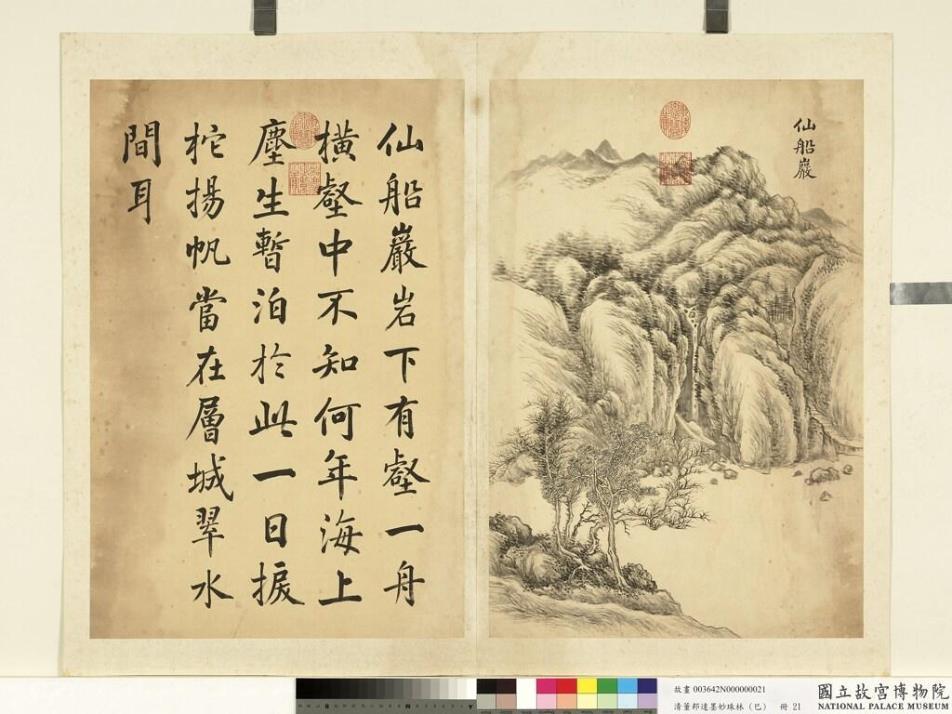 仙船巖
仙船巖岩下有壑一舟
橫壑中不知何年海上
塵生暫泊於此一日捩
柁揚帆當在層城翠水
間耳
故畫 003642N000000021
清董邦達墨妙珠林（巳） 冊 21
國立故宮博物院
NATIONAL PALACE MUSEUM